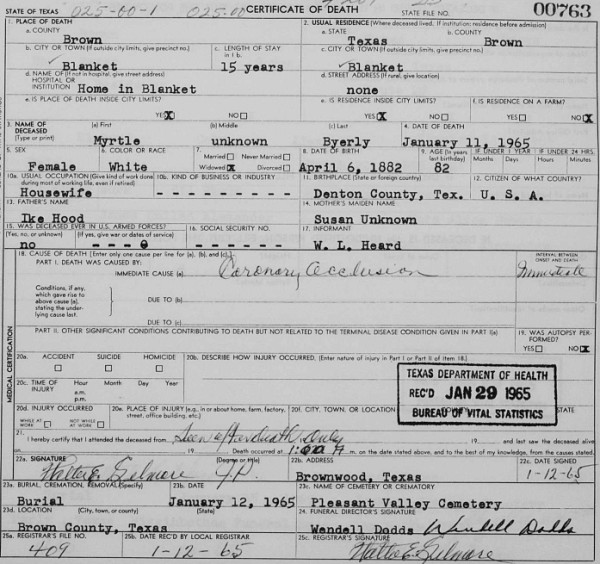 STATE OF TEXAS 025-00-1 025.00 CERTIFICATE OF DEATH STATE FILE NO. 00763
1. PLACE OF DEATH 2. USUAL RESIDENCE (Where deceased lived. If institution: residence before admission)
a. COUNTY a. STATE b. COUNTY
Brown Texas Brown
b. CITY OR TOWN (If outside city limits, give precinct no.) c. LENGTH OF STAY in 1 b. c. CITY OR TOWN (If outside city limits, give precinct no.)
Blanket 15 years Blanket
d. NAME OF (If not in hospital, give street address) d. STREET ADDRESS (If rural, give location)
HOSPITAL OR
INSTITUTION Home in Blanket none
e. IS PLACE OF DEATH INSIDE CITY LIMITS? e. IS RESIDENCE INSIDE CITY LIMITS? f. IS RESIDENCE ON A FARM?
YES X NO YES X NO YES NO X
3. NAME OF DECEASED (a) First (b) Middle (c) Last 4. DATE OF DEATH
(Type or print) Myrtle unknown Byerly January 11, 1965
5. SEX 6. COLOR OR RACE 7. Married Never Married 8. DATE OF BIRTH 9. AGE (In years last birthday) IF UNDER 1 YEAR IF UNDER 24 HRS.
Months Days Hours Minutes
Female White Widowed X Divorced April 6, 1882 82
10a. USUAL OCCUPATION (Give kind of work done during most of working life, even if retired) 10b. KIND OF BUSINESS OR INDUSTRY 11. BIRTHPLACE (State or foreign country) 12. CITIZEN OF WHAT COUNTRY?
Housewife Denton County, Tex. U. S. A.
13. FATHER'S NAME 14. MOTHER'S MAIDEN NAME
Ike Hood Susan Unknown
15. WAS DECEASED EVER IN U.S. ARMED FORCES? 16. SOCIAL SECURITY NO. 17. INFORMANT
(Yes, no, or unknown) (If yes, give war or dates of service)
no --- 0 W. L. Heard
18. CAUSE OF DEATH (Enter only one cause per line for (a), (b), and (c).) INTERVAL BETWEEN ONSET AND DEATH
PART I. DEATH WAS CAUSED BY:
IMMEDIATE CAUSE (a) Coronary Occlusion Immediate
Conditions, if any, which gave rise to above cause (a), stating the underlying cause last.
DUE TO (b)
DUE TO (c)
PART II. OTHER SIGNIFICANT CONDITIONS CONTRIBUTING TO DEATH BUT NOT RELATED TO THE TERMINAL DISEASE CONDITION GIVEN IN PART I(a) 19. WAS AUTOPSY PERFORMED?
YES NO X
MEDICAL CERTIFICATION
20a. ACCIDENT SUICIDE HOMICIDE 20b. DESCRIBE HOW INJURY OCCURRED. (Enter nature of injury in Part I or Part II of item 18.)
20c. TIME OF INJURY Hour Month Day Year
a.m.
p.m.
TEXAS DEPARTMENT OF HEALTH
REC'D JAN 29 1965
BUREAU OF VITAL STATISTICS
20d. INJURY OCCURRED 20e. PLACE OF INJURY (e.g., in or about home, farm, factory, street, office building, etc.) 20f. CITY, TOWN, OR LOCATION STATE
WHILE AT WORK NOT WHILE AT WORK
21. I hereby certify that I attended the deceased from Seen after death Only 19 and last saw the deceased alive
on 19 Death occurred at 1:00 A m. on the date stated above, and to the best of my knowledge, from the causes stated.
22a. SIGNATURE (Degree or title) 22b. ADDRESS 22c. DATE SIGNED
Walter E. Gilmore J.P. Brownwood, Texas 1-12-65
23a. BURIAL, CREMATION, REMOVAL (Specify) 23b. DATE 23c. NAME OF CEMETERY OR CREMATORY
Burial January 12, 1965 Pleasant Valley Cemetery
23d. LOCATION (City, town, or county) (State) 24. FUNERAL DIRECTOR'S SIGNATURE
Brown County, Texas Wendell Dodds Wendell Dodds
25a. REGISTRAR'S FILE NO. 25b. DATE REC'D BY LOCAL REGISTRAR 25c. REGISTRAR'S SIGNATURE
409 1-12-65 Walter E. Gilmore